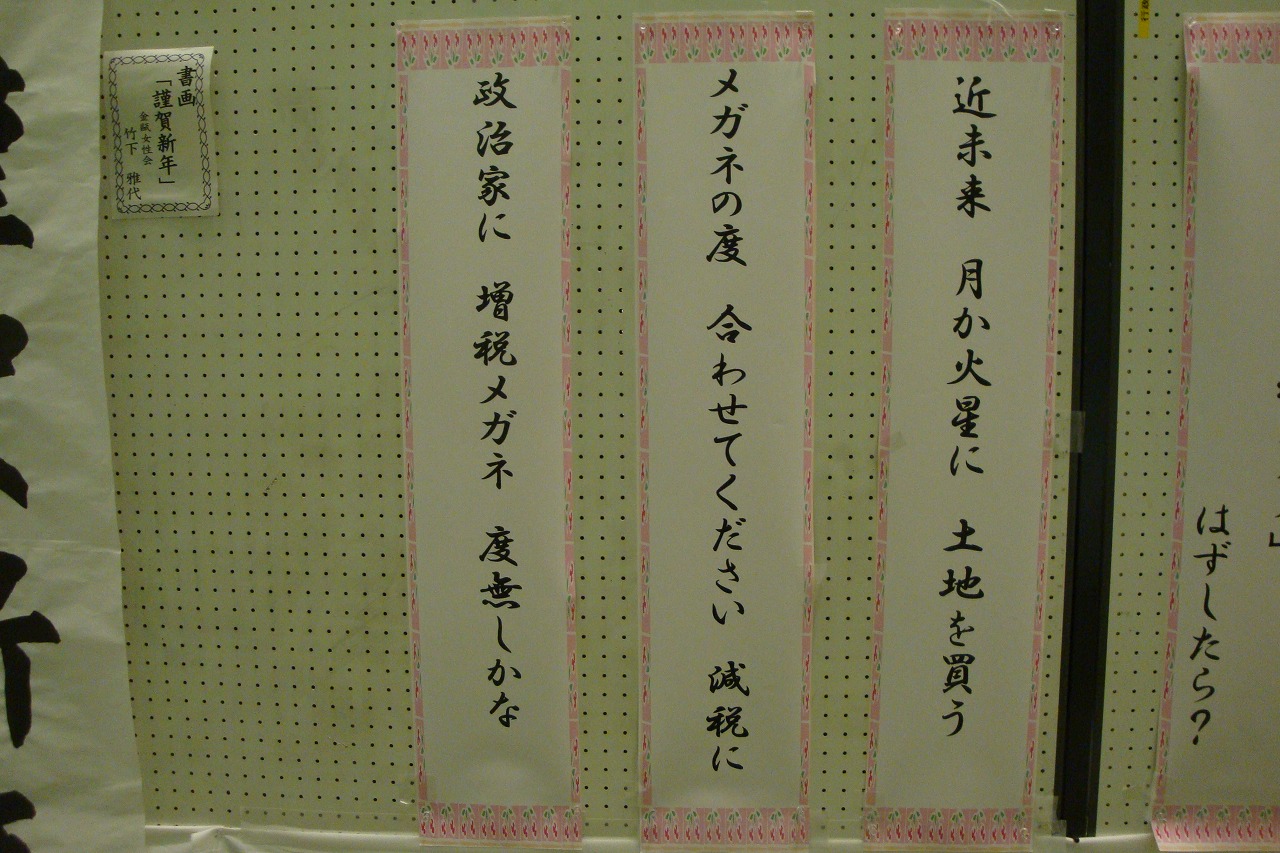 はずしたら?
近未来 月か火星に 土地を買う
メガネの度 合わせてください 減税に
政治家に 増税メガネ 度無しかな
書画
「謹賀新年」
金瓯女性会
竹下 雅代